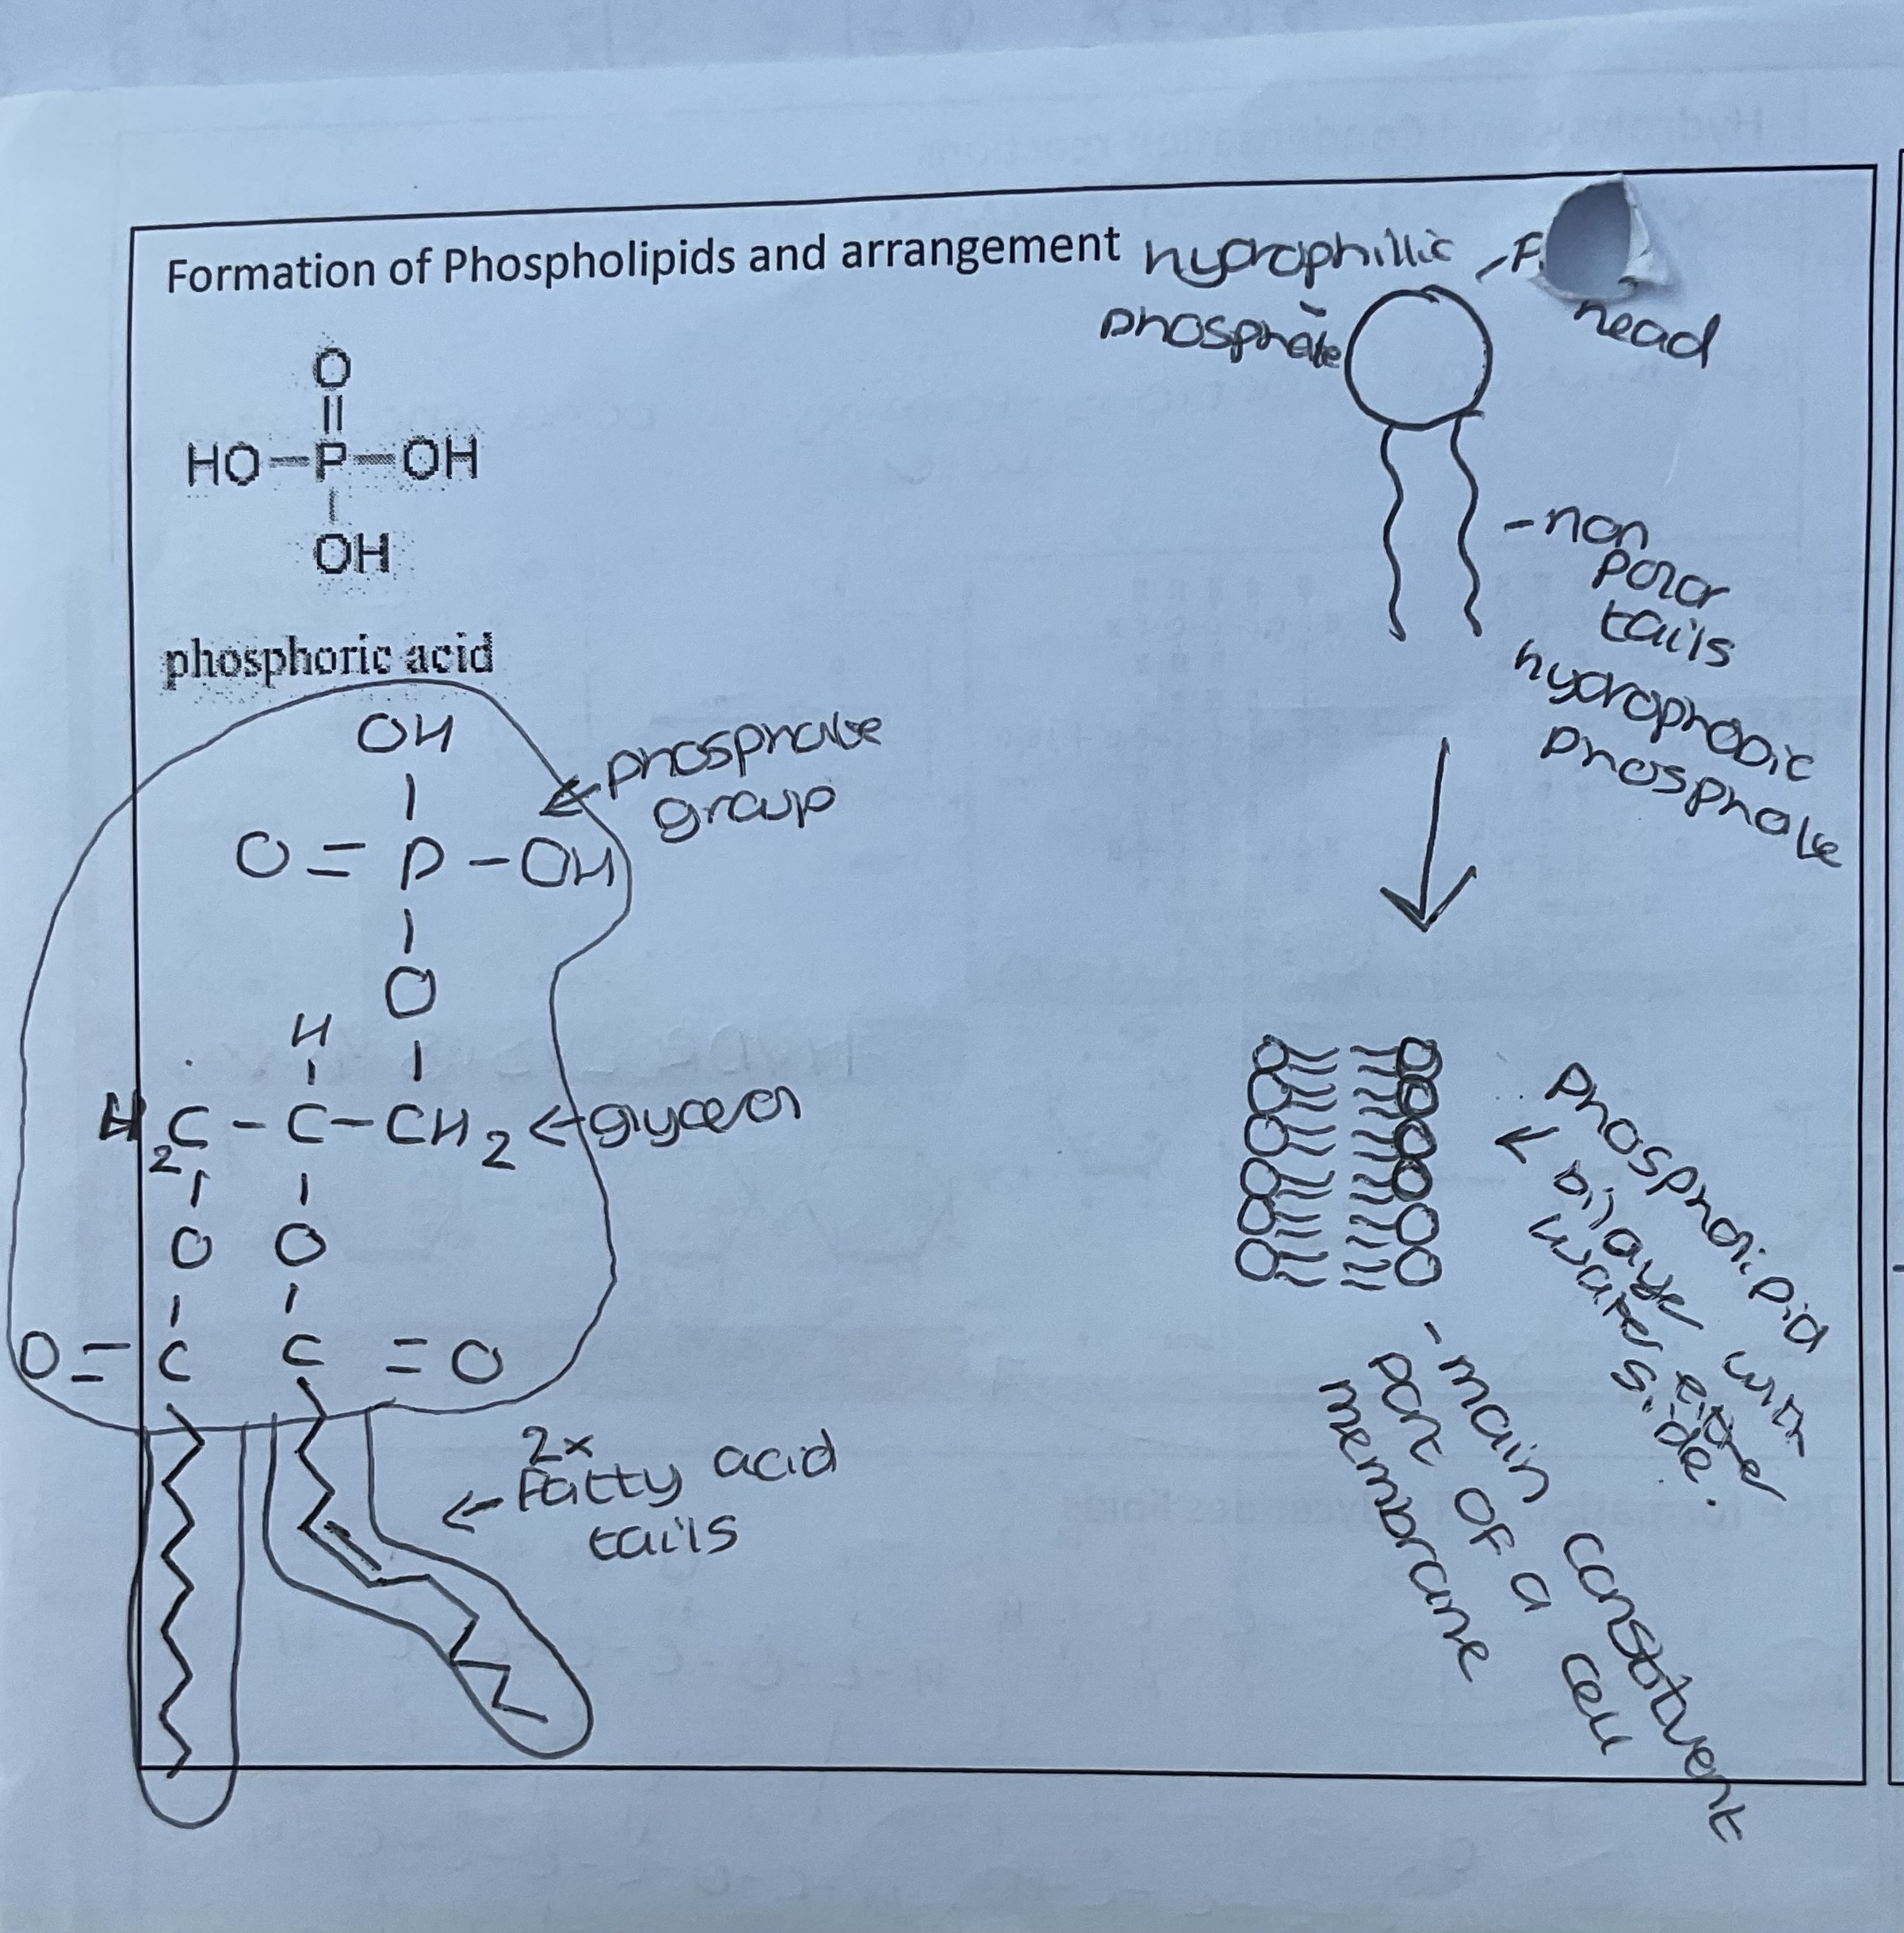 Formation of Phospholipids and arrangement
hydrophillic
phosphate
head
O
||
HO—P—OH
|
OH
phosphoric acid
- non
polar
tails
hydrophobic
phosphate
OH
|
O = P - OH
|
O
|
phosphate
group
H
|
H2C - C - CH2
glycerol
| |
O O
| |
O = C C = O
2x
Fatty acid
tails
phospholipid
bilayer with
water either
side.
- main constituent
part of a cell
membrane